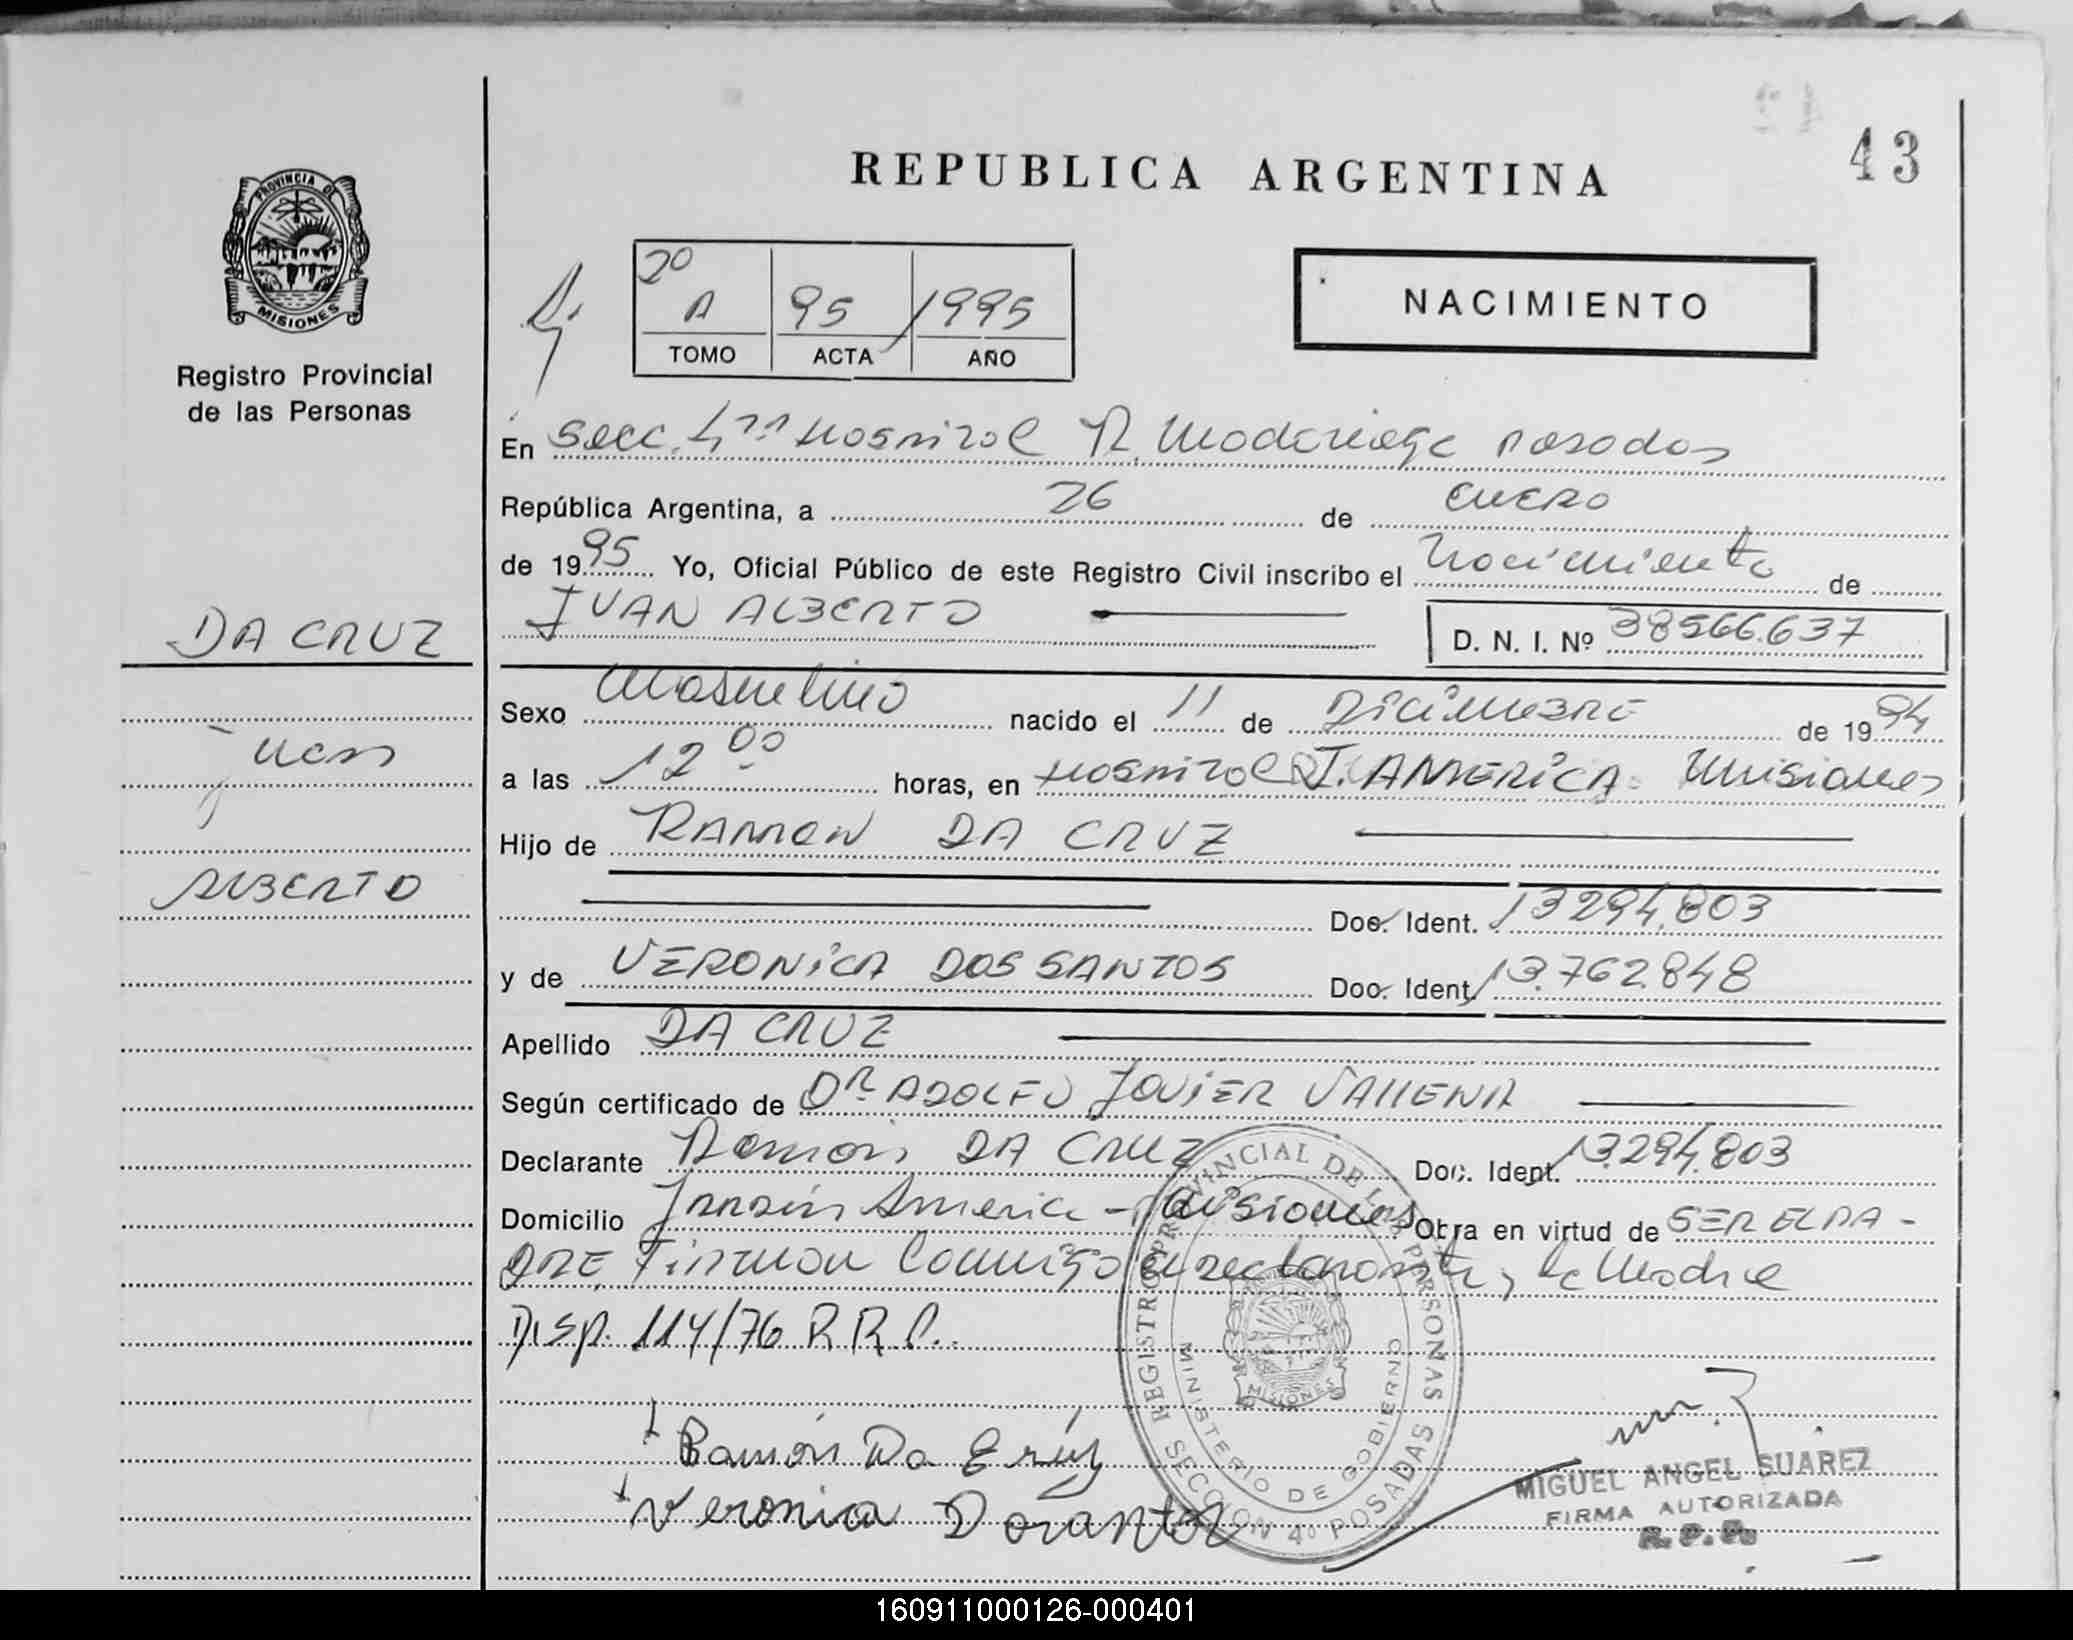 43
REPUBLICA ARGENTINA
PROVINCIA DE
MISIONES
Registro Provincial
de las Personas
2º
A 95 1995
TOMO ACTA AÑO
NACIMIENTO
En Secc. 4ta Hospital R. Madariaga Posadas
República Argentina, a 26 de Enero
de 1995 Yo, Oficial Público de este Registro Civil inscribo el Nacimiento de
JUAN ALBERTO D. N. I. Nº 38566.637
DA CRUZ
Juan
ALBERTO
Sexo Masculino nacido el 11 de Diciembre de 1994
a las 12 00 horas, en Hospital J. AMERICA Misiones
Hijo de RAMON DA CRUZ
Doc. Ident. 13294.803
y de VERONICA DOS SANTOS Doc. Ident. 13.762.848
Apellido DA CRUZ
Según certificado de Dr ADOLFO JAVIER
Declarante Ramón DA CRUZ Doc. Ident. 13.294.803
Domicilio Jardín America - Misiones Obra en virtud de SER EL PA-
DRE Firman Conmigo el declarante y la Madre
Disp. 114/76 R.R.P.
Ramón Da Crúz
Veronica Dosantos
REGISTRO PROVINCIAL DE LAS PERSONAS
MINISTERIO DE GOBIERNO
MISIONES
SECCION 4º POSADAS
MIGUEL ANGEL SUAREZ
FIRMA AUTORIZADA
R.P.P.
160911000126-000401